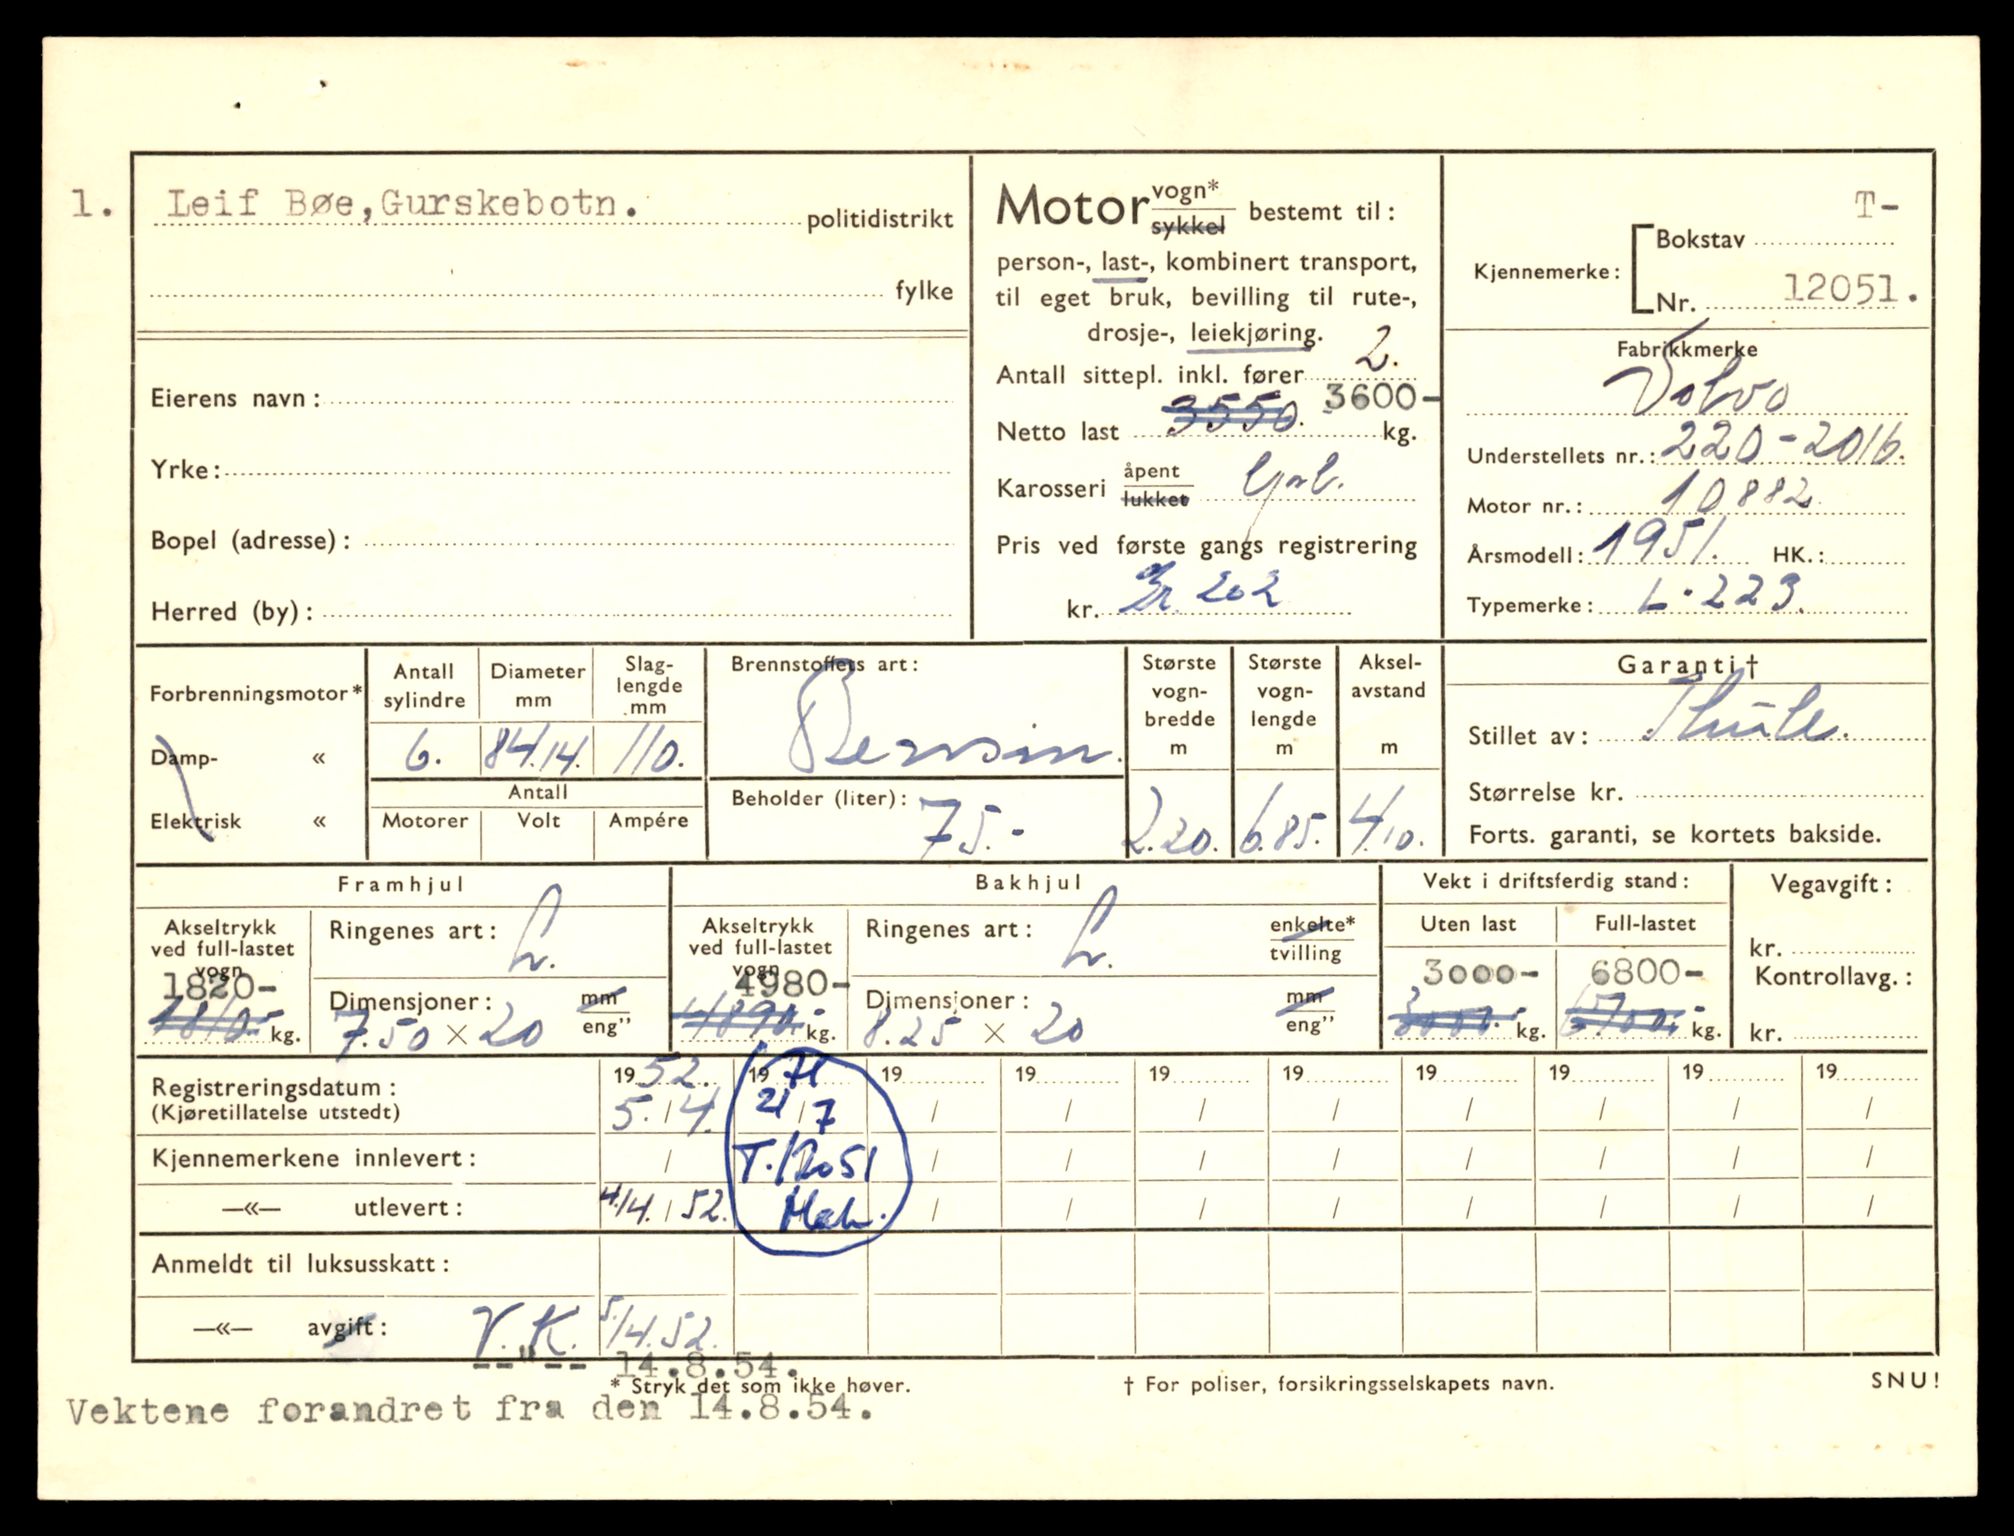 1. Leif Bøe, Gurskebotn. politidistrikt
fylke
Eierens navn:
Yrke:
Bopel (adresse):
Herred (by):
Motor vogn* sykkel bestemt til:
person-, last-, kombinert transport,
til eget bruk, bevilling til rute-,
drosje-, leiekjøring.
Antall sittepl. inkl. fører 2.
3600-
Netto last 3550. kg.
Karosseri åpent lukket
Pris ved første gangs registrering
kr. Gr 202
T-
Bokstav
Kjennemerke:
Nr. 12051.
Fabrikkmerke
Volvo
Understellets nr.: 220-2016.
Motor nr.: 10882
Årsmodell: 1951. HK.:
Typemerke: L-223.
Forbrenningsmotor*
Damp- «
Elektrisk «
Antall sylindre 6.
Diameter mm 84.14.
Slag-lengde mm 110.
Antall
Motorer Volt Ampére
Brennstoffets art:
Bensin.
Beholder (liter): 75.-
Største vogn-bredde m 2.20.
Største vogn-lengde m 6.85.
Aksel-avstand m 4.10.
Garanti†
Stillet av: Thule.
Størrelse kr.
Forts. garanti, se kortets bakside.
Framhjul
Akseltrykk ved full-lastet vogn
1820-
1810.- kg.
Ringenes art: L.
Dimensjoner: mm eng”
7.50 × 20
Bakhjul
Akseltrykk ved full-lastet vogn
4980-
4890.- kg.
Ringenes art: L. enkelte* tvilling
Dimensjoner: mm eng”
8.25 × 20
Vekt i driftsferdig stand:
Uten last Full-lastet
3000- 6800-
3000.- kg. 6700.- kg.
Vegavgift:
kr.
Kontrollavg.:
kr.
Registreringsdatum: 19 52. 19 71 19 19 19 19 19 19 19 19
(Kjøretillatelse utstedt) 5./4. 21/7 / / / / / / / /
Kjennemerkene innlevert: / T.12051 / / / / / / / /
—«— utlevert: 4./4. / 52. / / / / / / / /
Anmeldt til luksusskatt:
—«— avgift: V.K. 5./4.52.
--"-- 14.8.54.
* Stryk det som ikke høver. † For poliser, forsikringsselskapets navn. SNU!
Vektene forandret fra den 14.8.54.